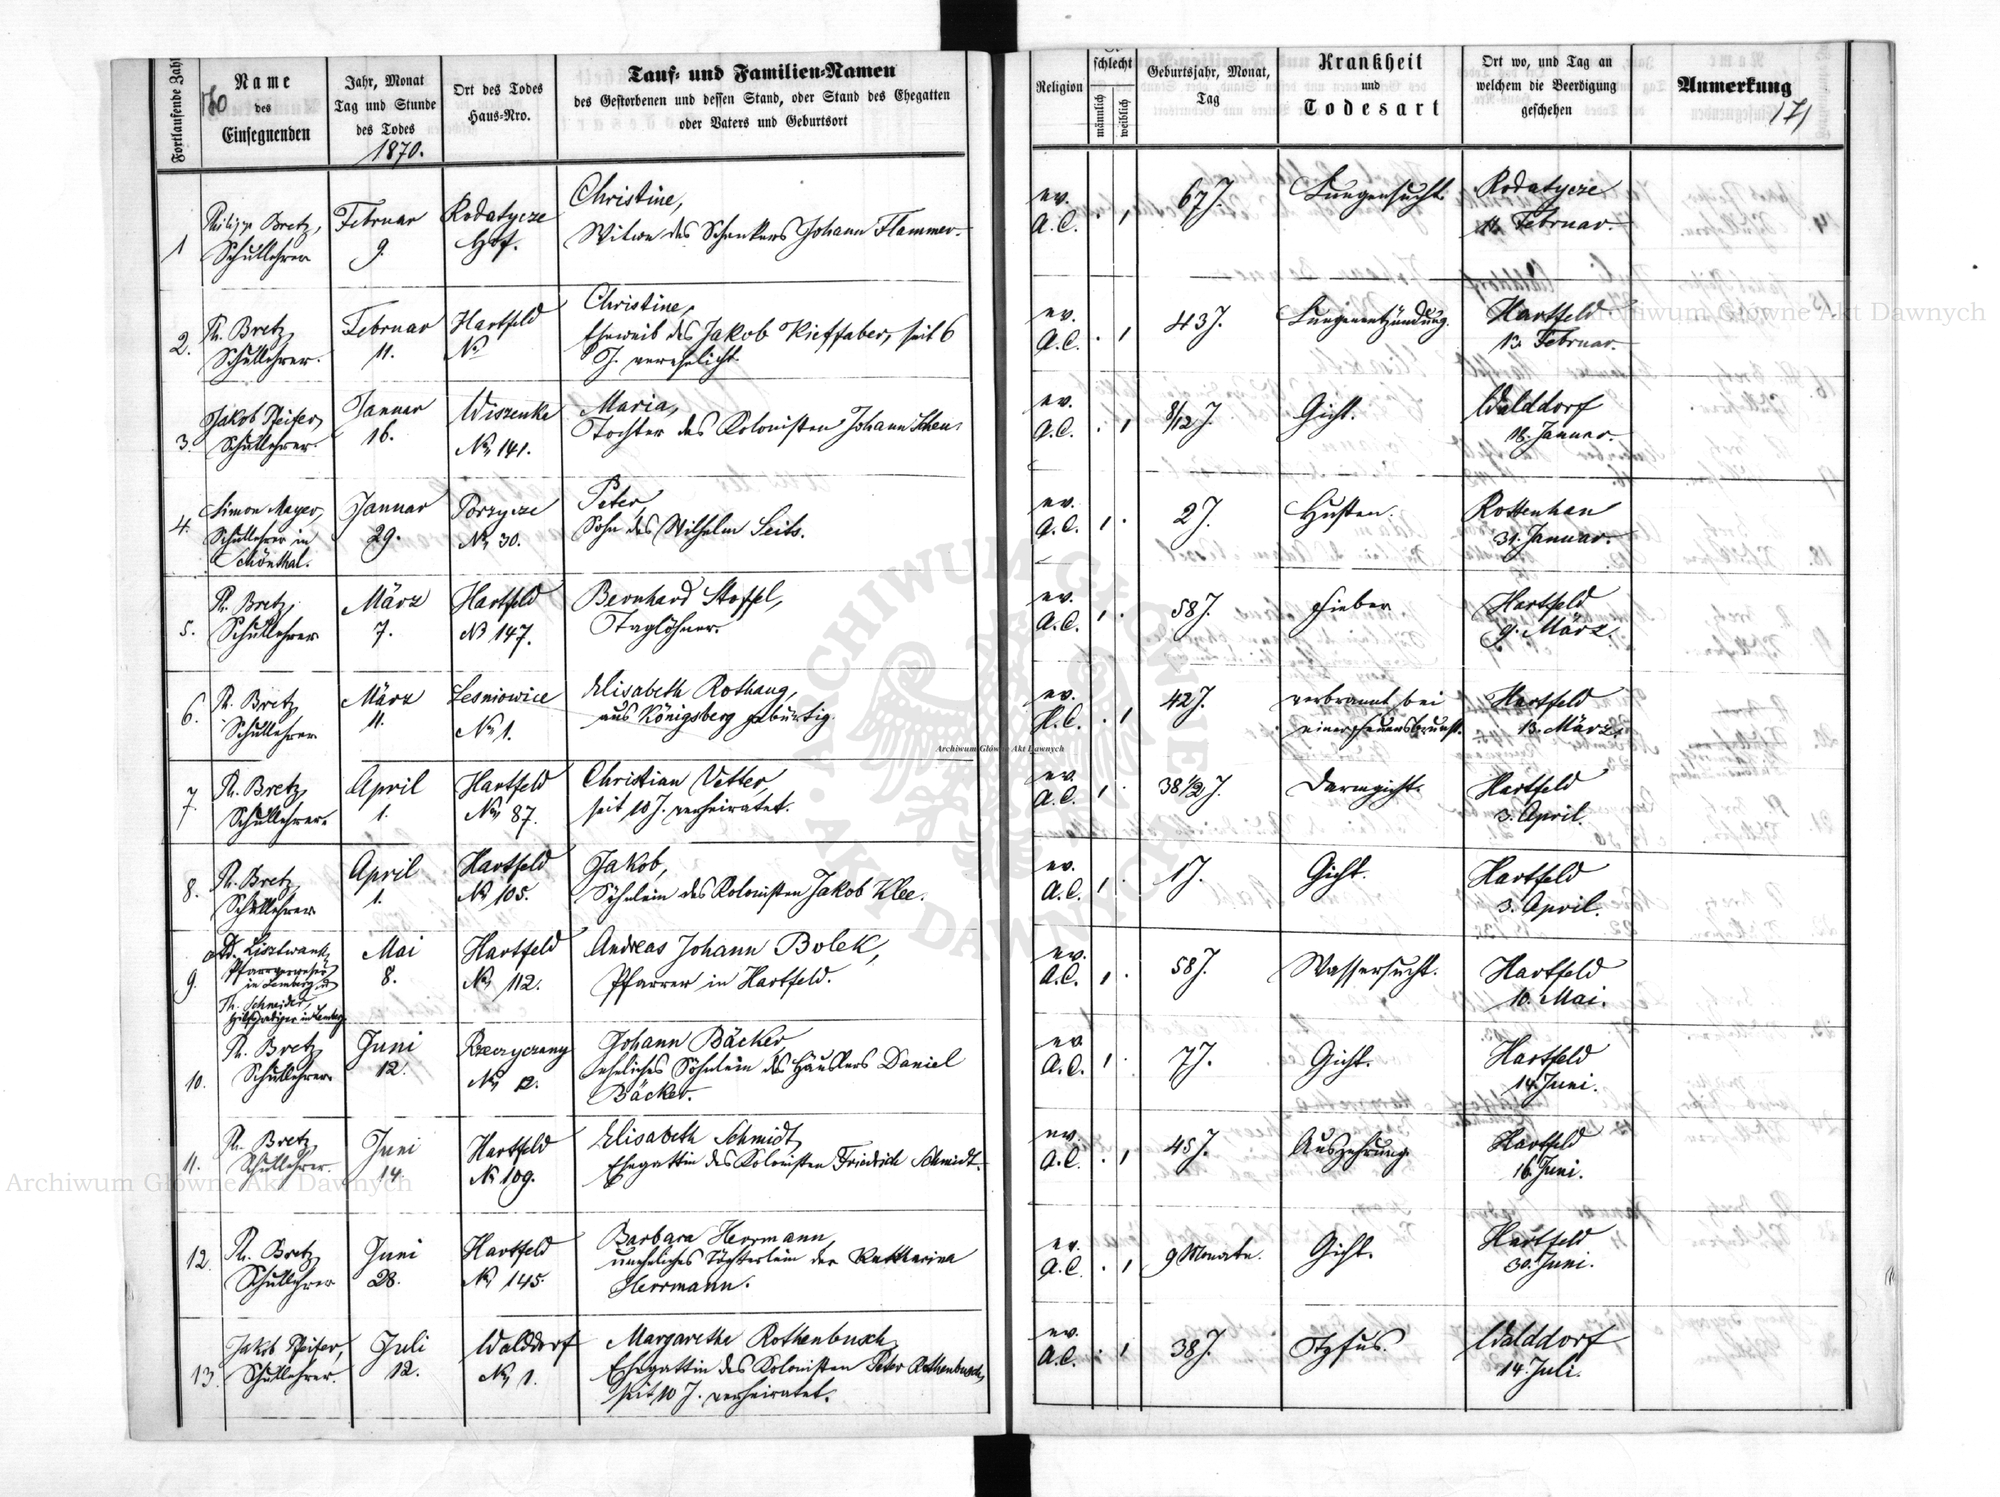 Fortlaufende Zahl
170
Name
des
Einsegnenden
Jahr, Monat
Tag und Stunde
des Todes
1870.
Ort des Todes
Haus-Nro.
Tauf- und Familien-Namen
des Gestorbenen und dessen Stand, oder Stand des Ehegatten
oder Vaters und Geburtsort
Religion
schlecht
männlich
weiblich
Geburtsjahr, Monat,
Tag
Krankheit
und
Todesart
Ort wo, und Tag an
welchem die Beerdigung
geschehen
Anmerkung
171
1
Philipp Bretz,
Schullehrer
Februar
9.
Rodatycze
Hof.
Christine,
Witwe des Schenkers Johann Flammer.
ev.
A. C.
67 J.
Lungensucht.
Rodatycze
11. Februar.
2.
Ph. Bretz,
Schullehrer.
Februar
11.
Hartfeld
No
Christine,
Eheweib des Jakob Kieffaber, seit 6
J. verehelicht.
ev.
A. C.
43 J.
Lungenentzündung.
Hartfeld
13. Februar.
3.
Jakob Pfeifer,
Schullehrer.
Januar
16.
Wiszenka
No 141.
Maria,
Tochter des Kolonisten Johann Scheu.
ev.
A. C.
8/12 J.
Gicht.
Walddorf
18. Januar.
4.
Simon Mayer,
Schullehrer in
Schönthal.
Januar
29.
Porzycze
No 30.
Peter,
Sohn des Wilhelm Seits.
ev.
A. C.
2 J.
Husten.
Rottenhan
31. Januar.
5.
Ph. Bretz,
Schullehrer
März
7.
Hartfeld
No 147.
Bernhard Stoffel,
Taglöhner.
ev.
A. C.
58 J.
Fieber
Hartfeld
9. März.
6.
Ph. Bretz,
Schullehrer
März
11.
Lesniowice
No 1.
Elisabeth Rothaug,
aus Königsberg gebürtig.
ev.
H. C.
42 J.
verbrannt bei
einer Feuersbrunst.
Hartfeld
13. März.
7.
Ph. Bretz,
Schullehrer.
April
1.
Hartfeld
No 87.
Christian Vetter,
seit 10 J. verheiratet.
ev.
A. C.
38 1/2 J.
Darmgicht.
Hartfeld
3. April.
8.
Ph. Bretz,
Schullehrer
April
1.
Hartfeld
No 105.
Jakob,
Söhnlein des Kolonisten Jakob Klee.
ev.
A. C.
1 J.
Gicht.
Hartfeld
3. April.
9.
Pfarrverweser
in Lemberg u.
Th. Schneider,
Hilfsprediger in Lemberg.
Mai
8.
Hartfeld
No 112.
Andreas Johann Bolek,
Pfarrer in Hartfeld.
ev.
A. C.
58 J.
Wassersucht.
Hartfeld
10. Mai.
10.
Ph. Bretz,
Schullehrer.
Juni
12.
Rzeczyczany
No 12.
Johann Bäcker,
eheliches Söhnlein des Häuslers Daniel
Bäcker.
ev.
A. C.
7 J.
Gicht.
Hartfeld
14. Juni.
11.
Ph. Bretz,
Schullehrer.
Juni
14.
Hartfeld
No 109.
Elisabeth Schmidt,
Ehegattin des Kolonisten Friedrich Schmidt.
ev.
A. C.
45 J.
Auszehrung.
Hartfeld
16. Juni.
12.
Ph. Bretz,
Schullehrer
Juni
28.
Hartfeld
No 145.
Barbara Herrmann,
uneheliches Töchterlein der Katharina
Herrmann.
ev.
A. C.
9 Monate.
Gicht.
Hartfeld
30. Juni.
13.
Jakob Pfeifer,
Schullehrer.
Juli
12.
Walddorf
No 1.
Margarethe Rothenbusch,
Ehegattin des Kolonisten Peter Rothenbusch,
seit 10 J. verheiratet.
ev.
A. C.
38 J.
Tyfus.
Walddorf
14. Juli.
Archiwum Główne Akt Dawnych
Archiwum Główne Akt Dawnych
Archiwum Główne Akt Dawnych
ARCHIWUM GŁÓWNE AKT DAWNYCH